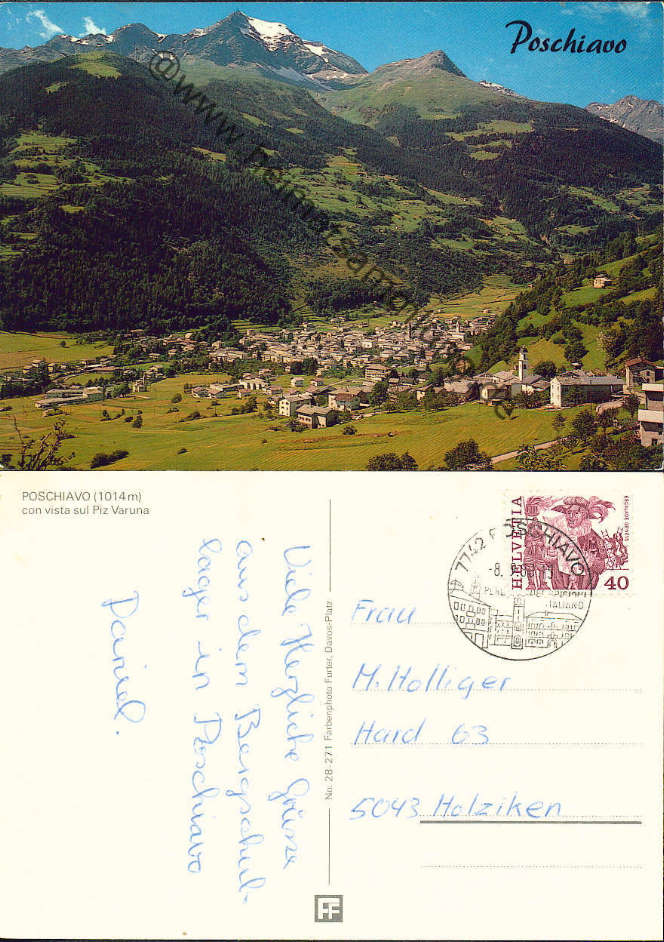 Poschiavo
© www.
POSCHIAVO (1014 m)
con vista sul Piz Varuna
Viele Herzliche Grüsse
aus dem Bergschul-
lager in Poschiavo
Daniel.
No. 28-271 Farbenphoto Furter, Davos-Platz
FF
7742 POSCHIAVO
-8.9.
ITALIANO
HELVETIA
40
Frau
M. Holliger
Hard 63
5043 Holziken